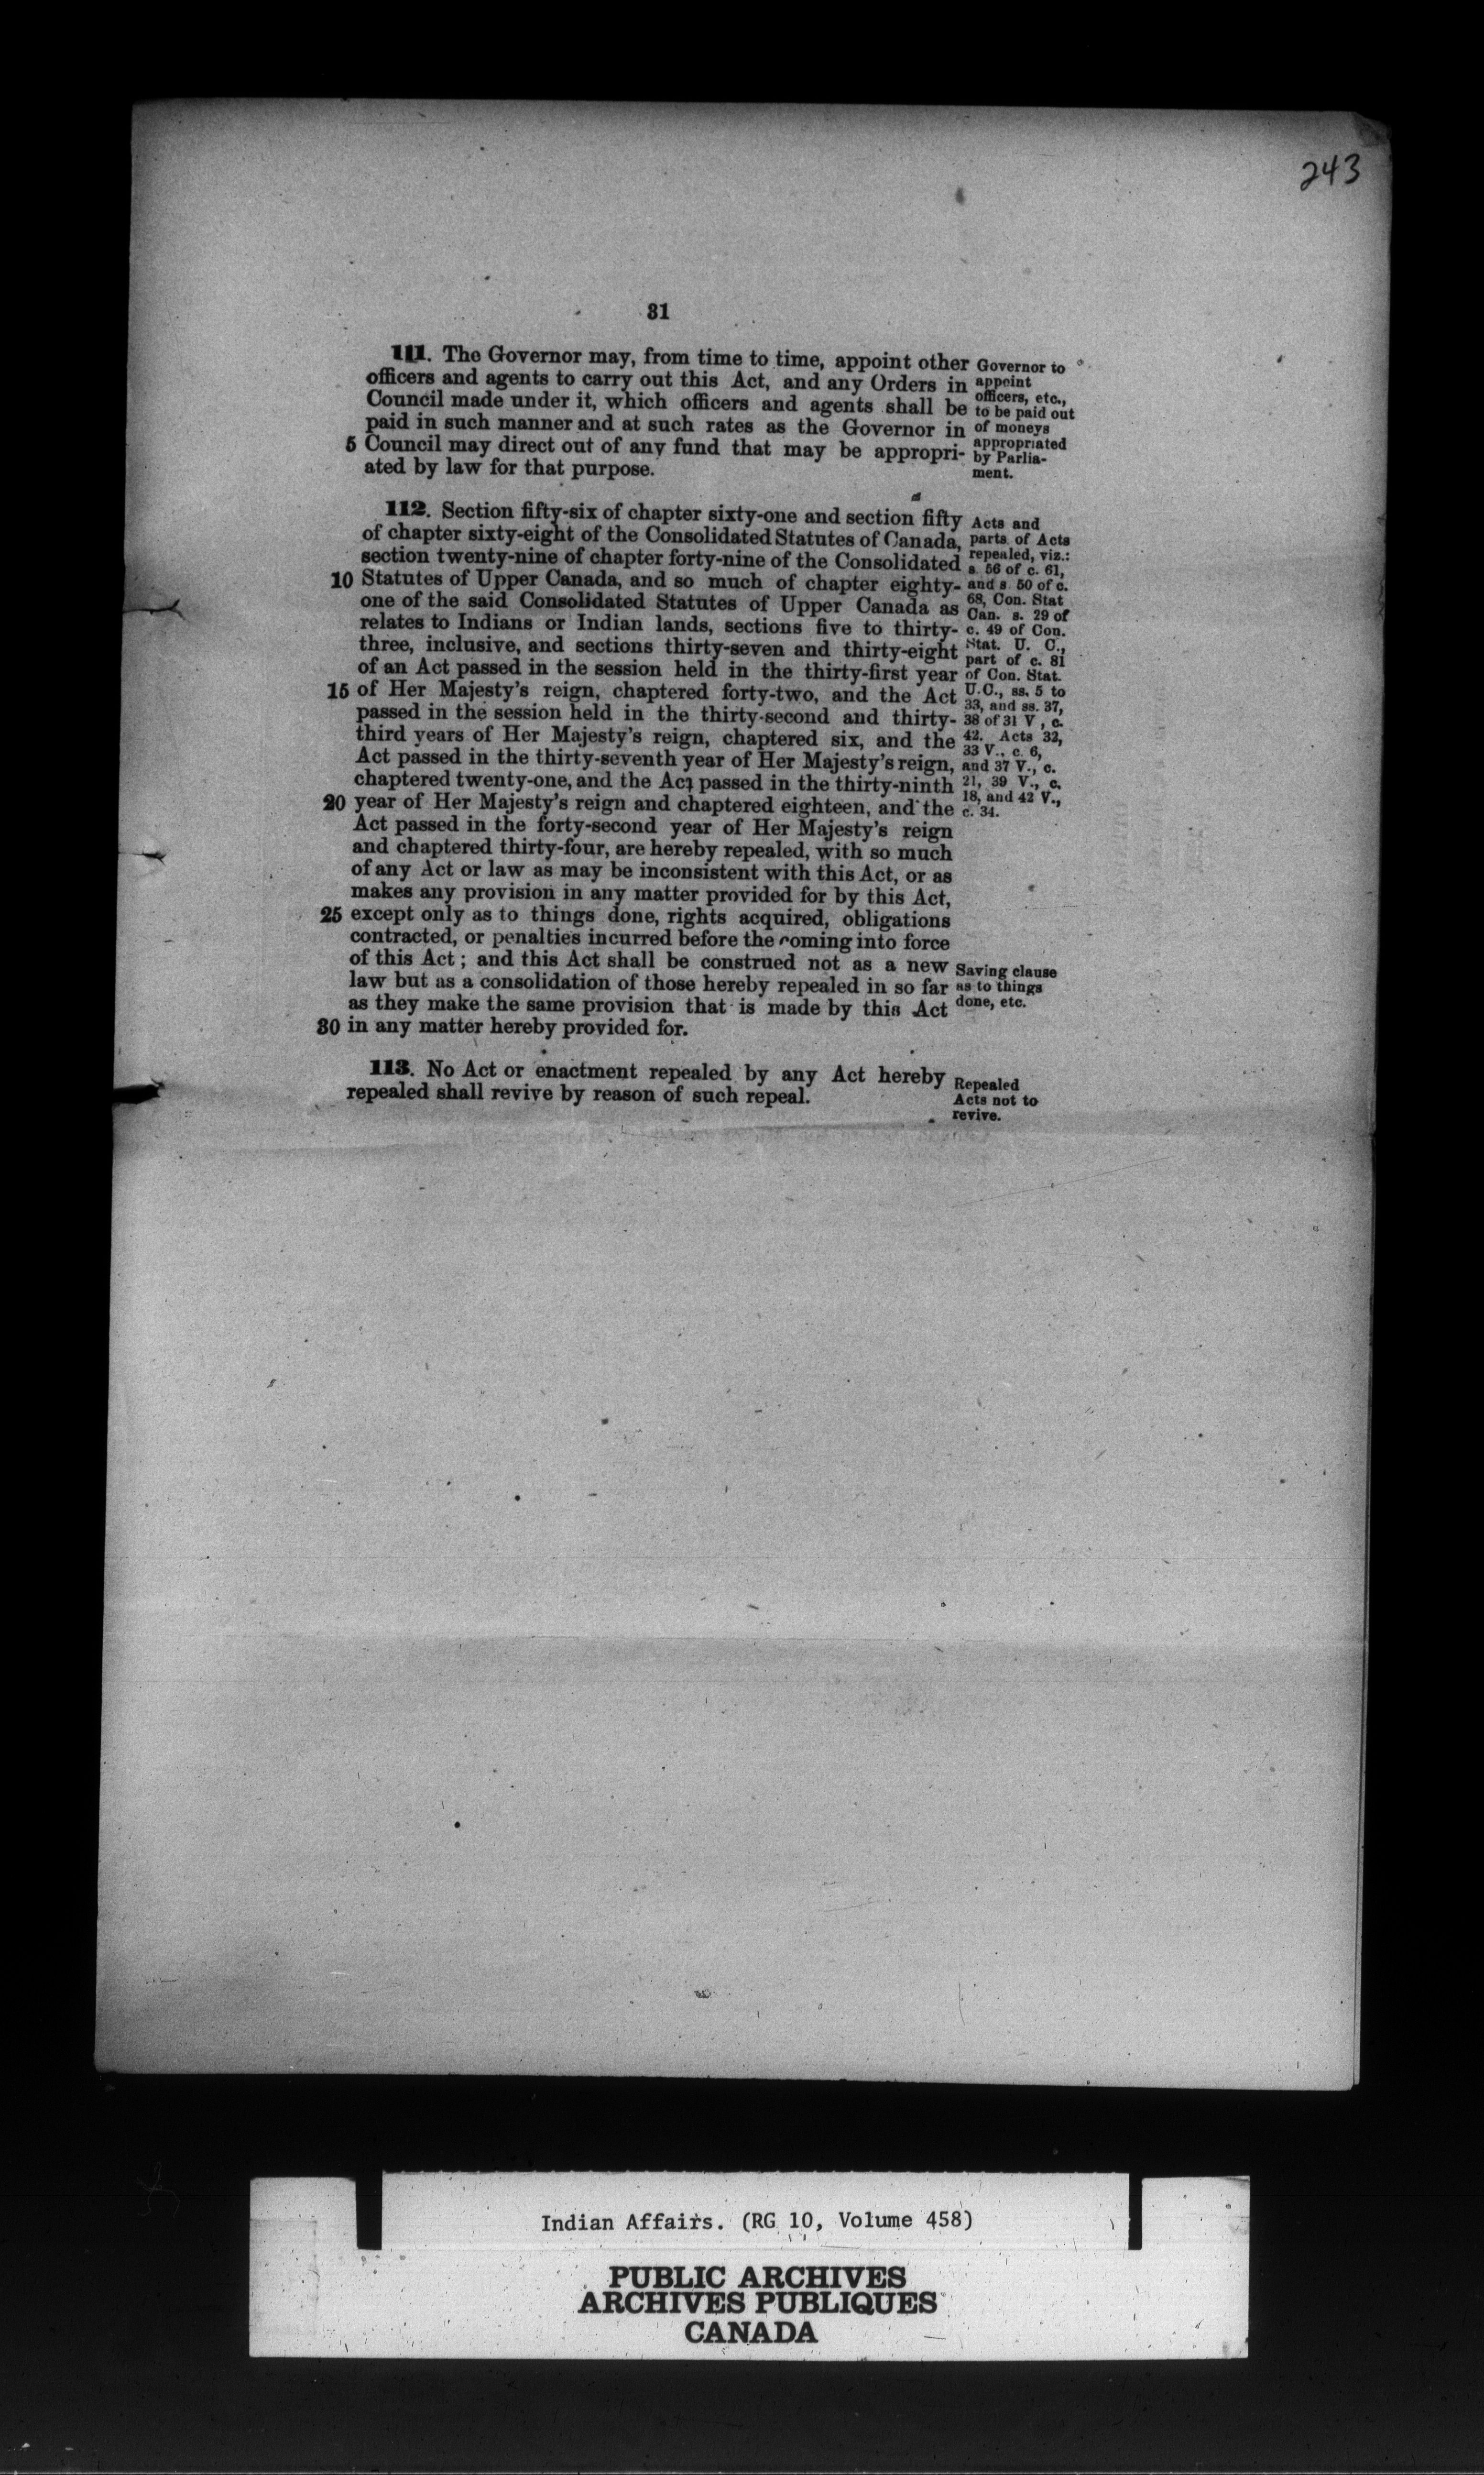 243
31
111. The Governor may, from time to time, appoint other
officers and agents to carry out this Act, and any Orders in
Council made under it, which officers and agents shall be
paid in such manner and at such rates as the Governor in
5 Council may direct out of any fund that may be appropri-
ated by law for that purpose.
Governor to
appoint
officers, etc.,
to be paid out
of moneys
appropriated
by Parlia-
ment.
112. Section fifty-six of chapter sixty-one and section fifty
of chapter sixty-eight of the Consolidated Statutes of Canada,
section twenty-nine of chapter forty-nine of the Consolidated
10 Statutes of Upper Canada, and so much of chapter eighty-
one of the said Consolidated Statutes of Upper Canada as
relates to Indians or Indian lands, sections five to thirty-
three, inclusive, and sections thirty-seven and thirty-eight
of an Act passed in the session held in the thirty-first year
15 of Her Majesty's reign, chaptered forty-two, and the Act
passed in the session held in the thirty-second and thirty-
third years of Her Majesty's reign, chaptered six, and the
Act passed in the thirty-seventh year of Her Majesty's reign,
chaptered twenty-one, and the Act passed in the thirty-ninth
20 year of Her Majesty's reign and chaptered eighteen, and the
Act passed in the forty-second year of Her Majesty's reign
and chaptered thirty-four, are hereby repealed, with so much
of any Act or law as may be inconsistent with this Act, or as
makes any provision in any matter provided for by this Act,
25 except only as to things done, rights acquired, obligations
contracted, or penalties incurred before the coming into force
of this Act; and this Act shall be construed not as a new
law but as a consolidation of those hereby repealed in so far
as they make the same provision that is made by this Act
30 in any matter hereby provided for.
Acts and
parts of Acts
repealed, viz.:
s. 56 of c. 61,
and s 50 of c.
68, Con. Stat
Can. s. 29 of
c. 49 of Con.
Stat. U. C.,
part of c. 81
of Con. Stat.
U.C., ss. 5 to
33, and ss. 37,
38 of 31 V, c.
42. Acts 32,
33 V., c. 6,
and 37 V., c.
21, 39 V., c.
18, and 42 V.,
c. 34.
Saving clause
as to things
done, etc.
113. No Act or enactment repealed by any Act hereby
repealed shall revive by reason of such repeal.
Repealed
Acts not to
revive.
Indian Affairs. (RG 10, Volume 458)
PUBLIC ARCHIVES
ARCHIVES PUBLIQUES
CANADA